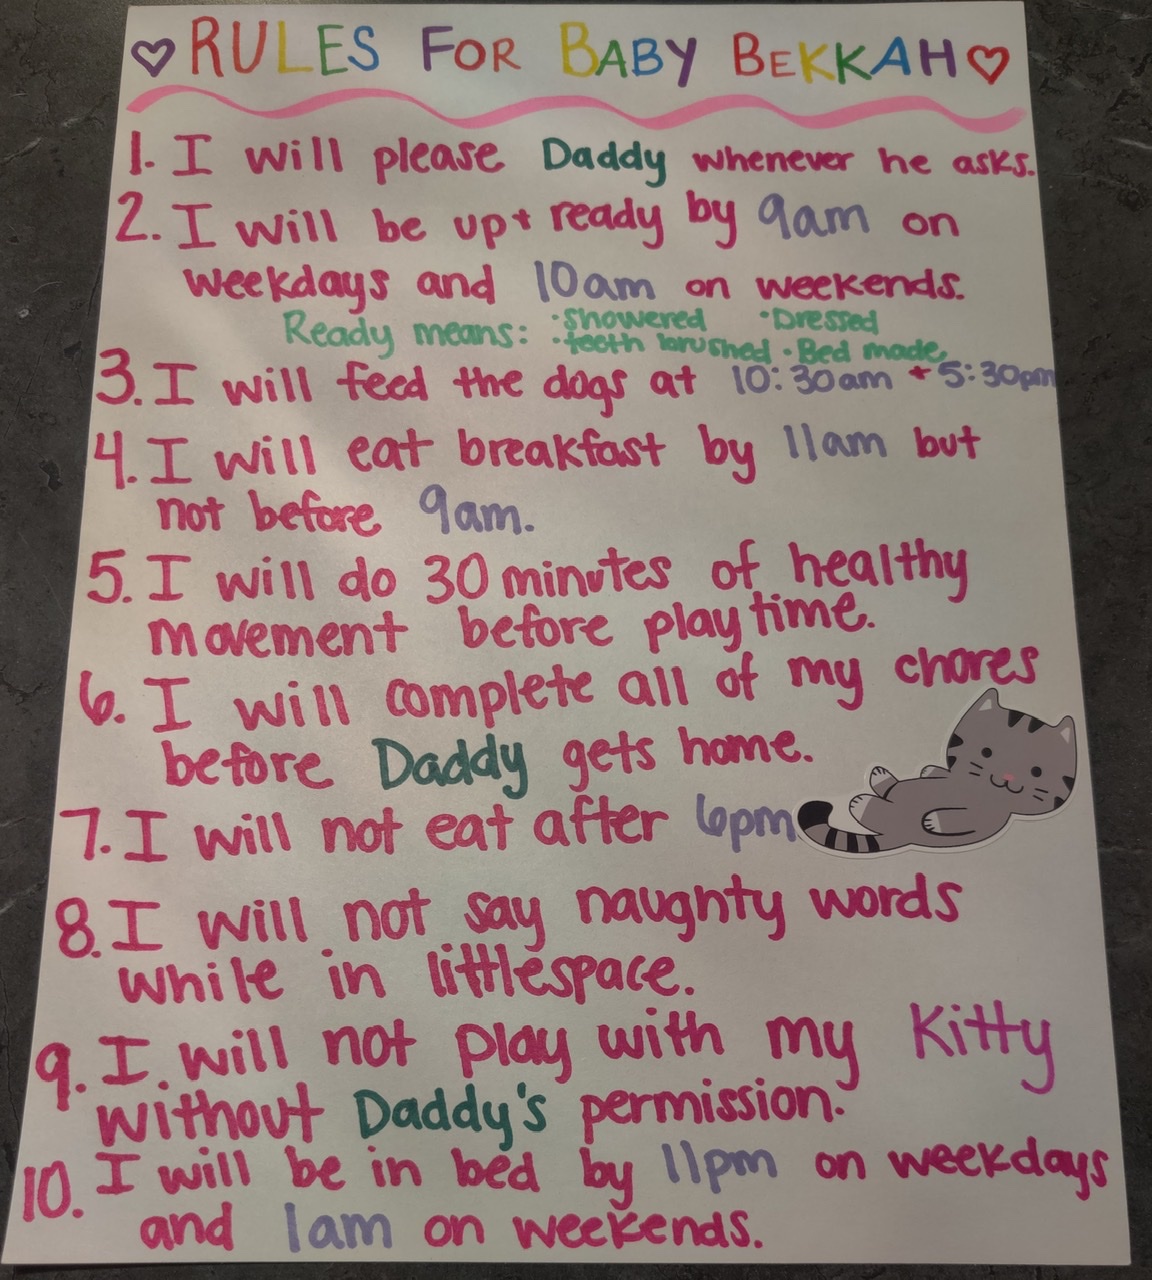 ♡ RULES FOR BABY BEKKAH ♡
1. I will please Daddy whenever he asks.
2. I will be up + ready by 9am on
weekdays and 10am on weekends.
Ready means: •Showered •Dressed
•teeth brushed •Bed made
3. I will feed the dogs at 10:30am + 5:30pm
4. I will eat breakfast by 11am but
not before 9am.
5. I will do 30 minutes of healthy
movement before playtime.
6. I will complete all of my chores
before Daddy gets home.
7. I will not eat after 6pm
8. I will not say naughty words
while in littlespace.
9. I will not play with my Kitty
without Daddy's permission.
10. I will be in bed by 11pm on weekdays
and 1am on weekends.